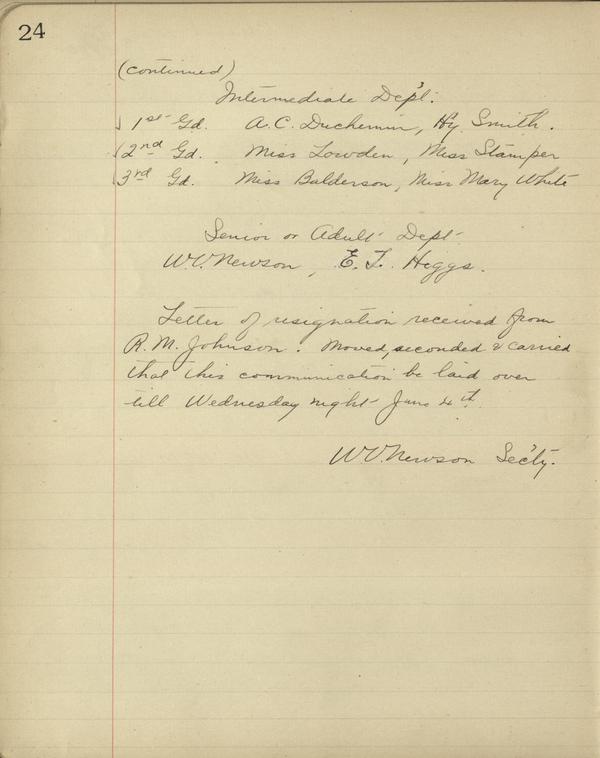 24
(continued)
Intermediate Dep't.
√ 1st Gd. A. C. Duchemin, Hy. Smith.
√ 2nd Gd. Miss Lowden, Miss Stamper
√ 3rd Gd. Miss Balderson, Miss Mary White
Senior or Adult Dept.
W.V. Newson, E. T. Higgs.
Letter of resignation received from
R. M. Johnson. Moved, seconded & carried
that this communication be laid over
till Wednesday night June 4th.
W.V. Newson Sec'ty.